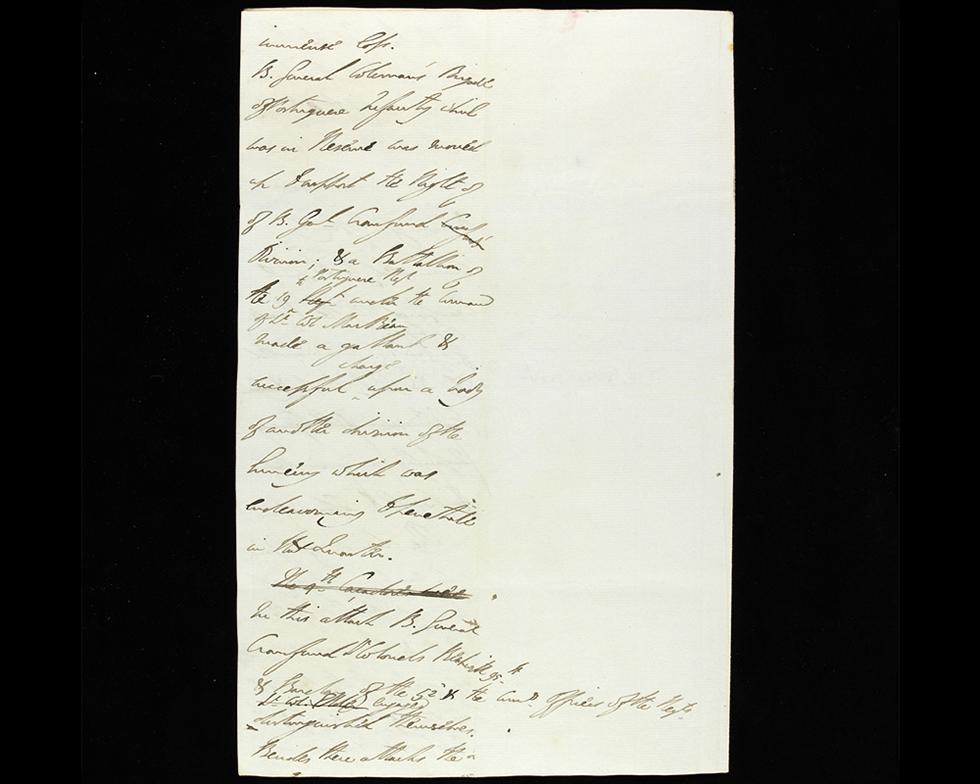 immense loss.
B. General Coleman's Brigade
of Portuguese Infantry which
was in Reserve was moved
up to support the Right of
of B. Genl. Craufurd
Division; & a Battalion of
Portuguese Regt
the 19 Regt under the Command
of Lt. Col. MacBean
made a gallant &
charge
successful upon a body
of another division of the
Enemy which was
endeavouring to penetrate
in that Quarter.
The 4th Cacadores were
In this attack B. General
Craufurd Lt Colonels Beckwith 95th
& Barclay of the 52d & the Comg. Officers of the Regts
Lt. Col. engaged
distinguished themselves.
Besides these attacks the